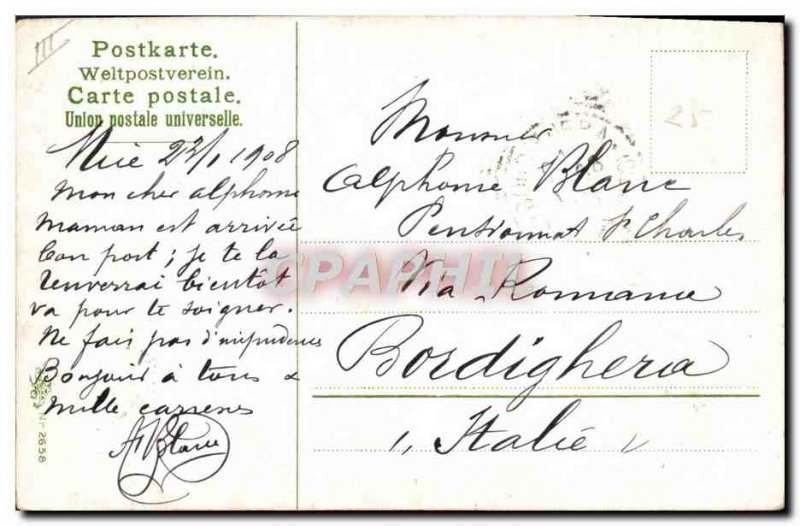 III
Postkarte.
Weltpostverein.
Carte postale.
Union postale universelle.
Nice 23/1 1908
Mon cher Alphonse
Maman est arrivée
bon port ; je te la
renverrai bientôt
va pour te soigner.
Ne fais pas d'imprudences
Bonjour à tous &
mille caresses
A Blanc
Nr. 2658
25
Monsieur
Alphonse Blanc
Pensionnat St Charles
Via Romana
Bordighera
Italie
CPAPHIL